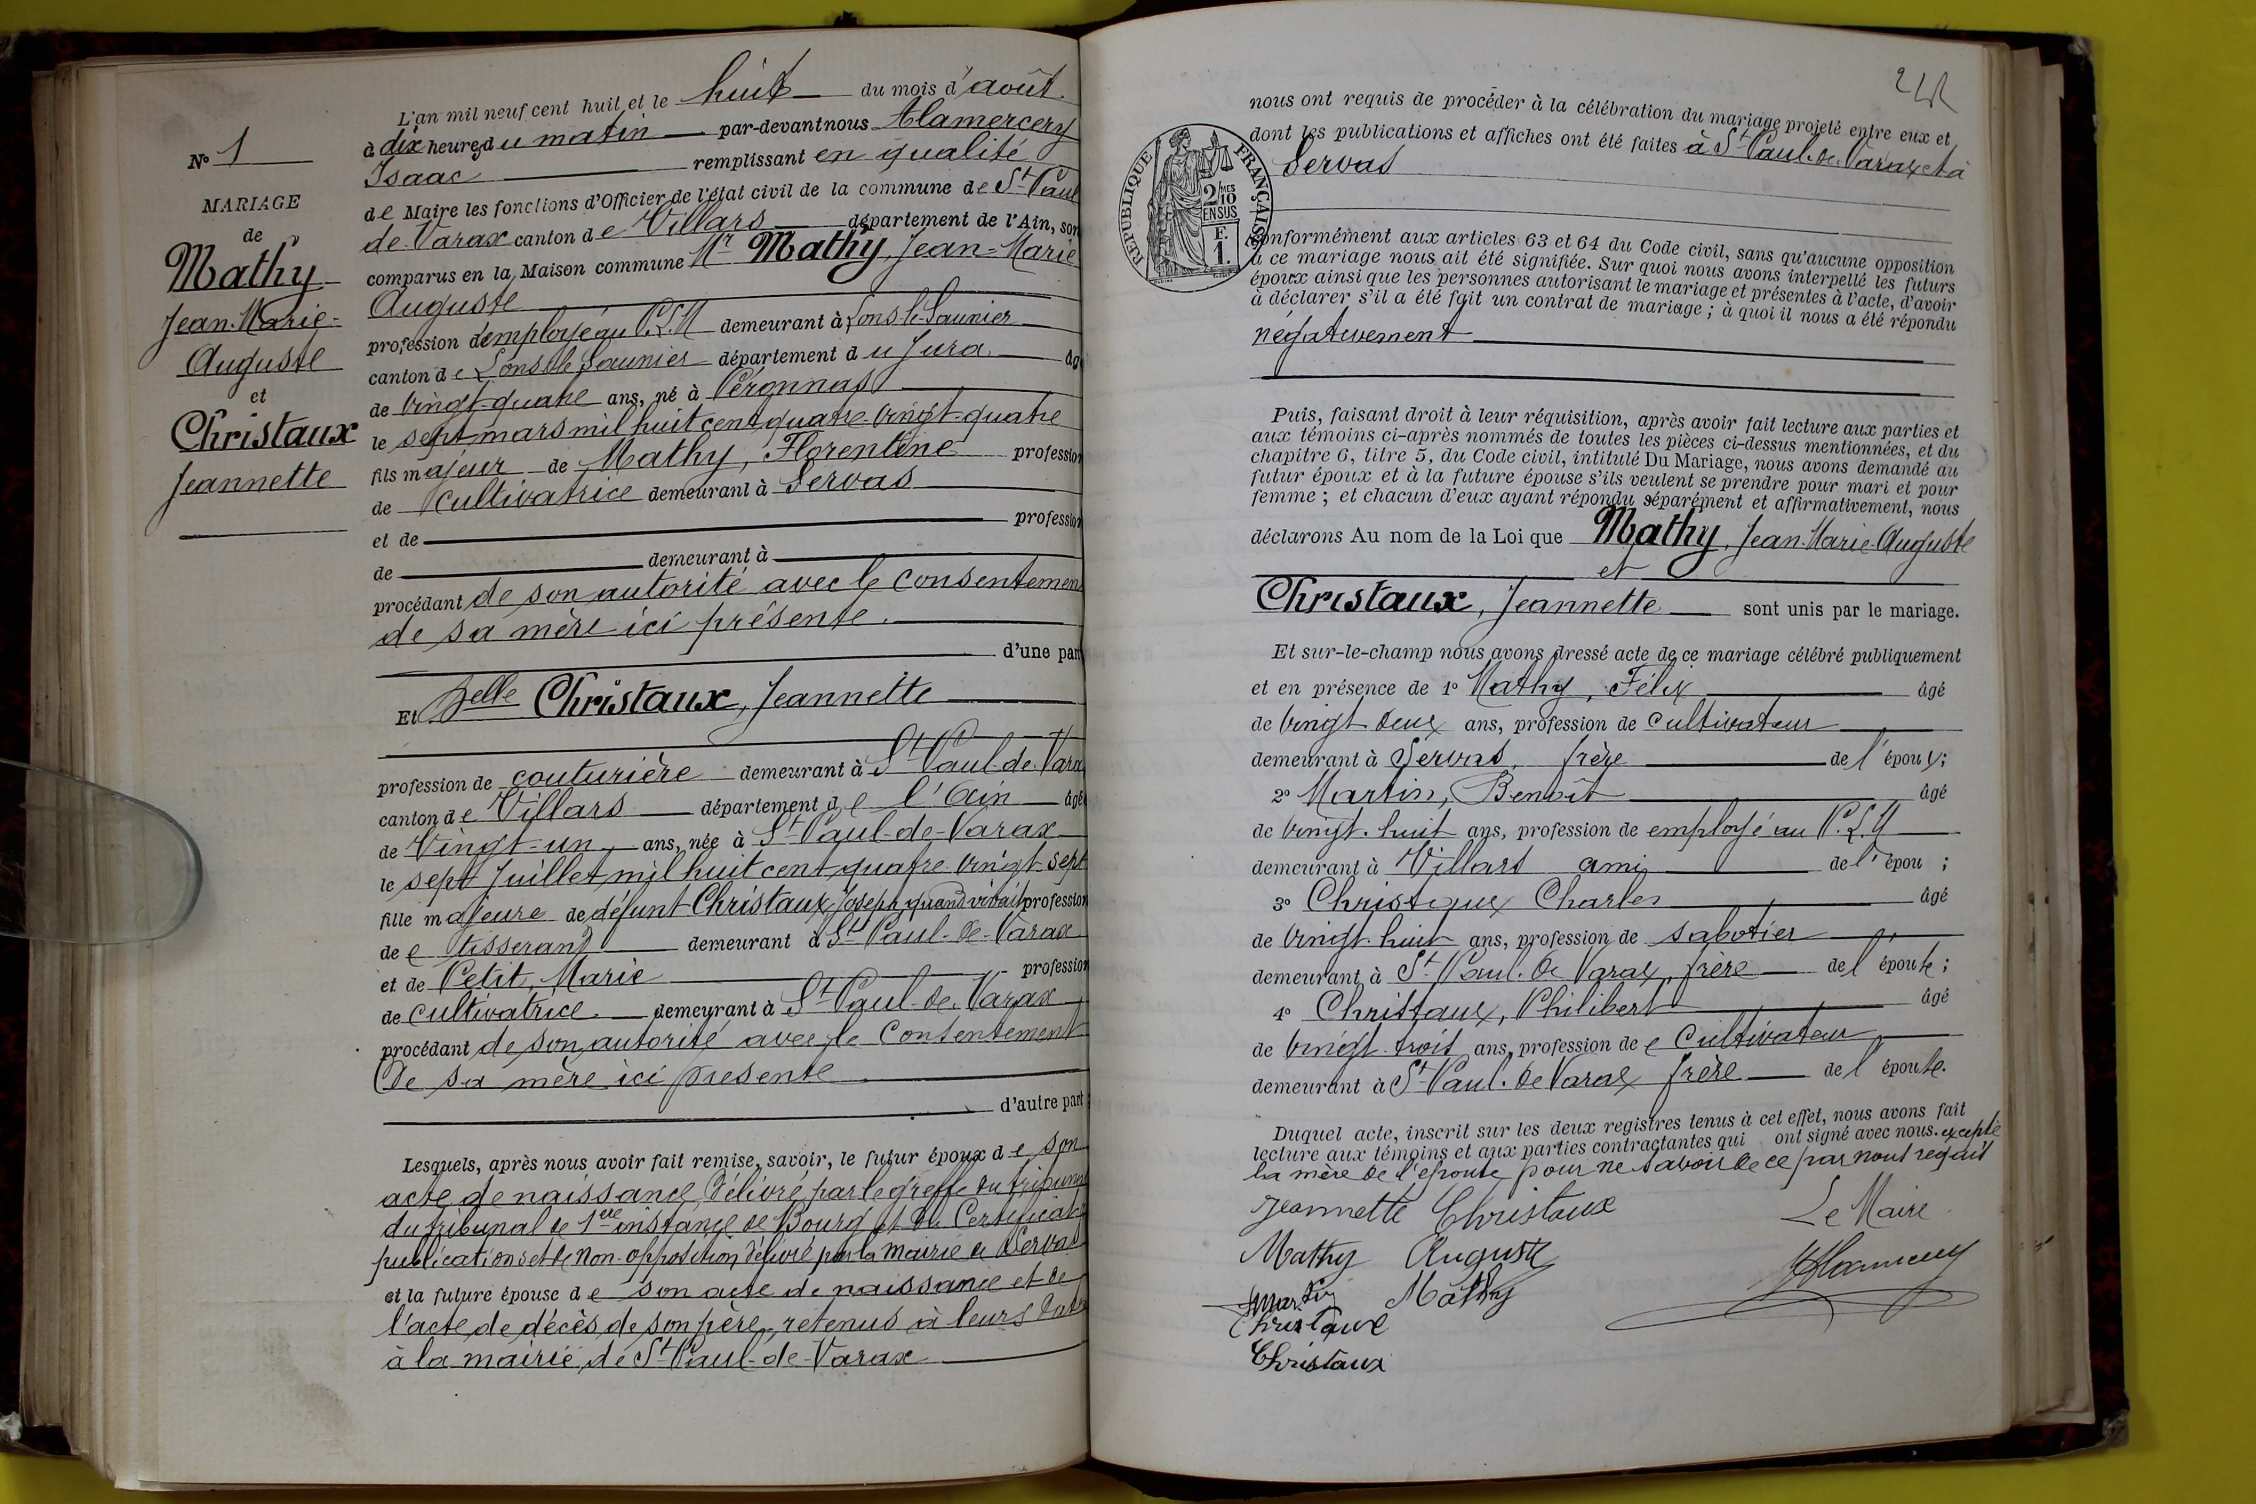 N° 1
MARIAGE
de
Mathy
Jean-Marie-
Auguste
et
Christaux
Jeannette
L'an mil neuf cent huit et le huit du mois d'août
à dix heures du matin par-devant nous Alamercery
Isaac remplissant en qualité
de Maire les fonctions d'Officier de l'état civil de la commune de St Paul
de Varax canton de Villars département de l'Ain, son
comparus en la Maison commune Mr Mathy, Jean-Marie
Auguste
profession d'employé au P.L.M demeurant à Lons-le-Saunier
canton de Lons le Saunier département du Jura âgé
de vingt-quatre ans, né à Péronnas
le sept mars mil huit cent quatre-vingt-quatre
fils majeur de Mathy, Florentine profession
de cultivatrice demeurant à Servas
et de profession
de demeurant à
procédant de son autorité avec le consentement
de sa mère ici présente.
d'une part
Et Delle Christaux, Jeannette
profession de couturière demeurant à St Paul-de-Varax
canton de Villars département de l'Ain âgé
de Vingt-un ans, née à St Paul-de-Varax
le sept Juillet mil huit cent quatre-vingt-sept
fille majeure de défunt Christaux Joseph quand vivait profession
de e tisserand demeurant à St Paul-de-Varax
et de Petit, Marie profession
de cultivatrice demeurant à St Paul-de-Varax
procédant de son autorité avec le Consentement
De sa mère ici présente
d'autre part
Lesquels, après nous avoir fait remise, savoir, le futur époux de son
acte de naissance délivré par le greffe du tribunal
du tribunal de 1ère instance de Bourg et du Certificat de
publications et de non-opposition délivré par la mairie de Servas
et la future épouse de son acte de naissance et de
l'acte de décès de son père, retenus à leurs dates
à la mairie de St Paul-de-Varax
nous ont requis de procéder à la célébration du mariage projeté entre eux et
dont les publications et affiches ont été faites à St Paul-de-Varax et à
Servas
RÉPUBLIQUE FRANÇAISE
2/10 MES
EN SUS
F.
1.
conformément aux articles 63 et 64 du Code civil, sans qu'aucune opposition
à ce mariage nous ait été signifiée. Sur quoi nous avons interpellé les futurs
époux ainsi que les personnes autorisant le mariage et présentes à l'acte, d'avoir
à déclarer s'il a été fait un contrat de mariage ; à quoi il nous a été répondu
négativement
Puis, faisant droit à leur réquisition, après avoir fait lecture aux parties et
aux témoins ci-après nommés de toutes les pièces ci-dessus mentionnées, et du
chapitre 6, titre 5, du Code civil, intitulé Du Mariage, nous avons demandé au
futur époux et à la future épouse s'ils veulent se prendre pour mari et pour
femme ; et chacun d'eux ayant répondu séparément et affirmativement, nous
déclarons Au nom de la Loi que Mathy, Jean-Marie-Auguste
et
Christaux, Jeannette sont unis par le mariage.
Et sur-le-champ nous avons dressé acte de ce mariage célébré publiquement
et en présence de 1° Mathy, Félix âgé
de vingt deux ans, profession de cultivateur
demeurant à Servas, frère de l'époux;
2° Martin, Benoît âgé
de vingt-huit ans, profession de employé au P.L.M
demeurant à Villars ami de l'épou ;
3° Christaux Charles âgé
de vingt-huit ans, profession de sabotier
demeurant à St Paul-de Varax, frère de l'épouse;
4° Christaux, Philibert âgé
de vingt-trois ans, profession de e Cultivateur
demeurant à St Paul-de Varax frère de l'épouse.
Duquel acte, inscrit sur les deux registres tenus à cet effet, nous avons fait
lecture aux témoins et aux parties contractantes qui ont signé avec nous. excepté
la mère de l'épouse pour ne savoir de ce par nous requis
Jeannette Christaux
Le Maire
Mathy Auguste
Martin
Mathy
Christaux
Christaux